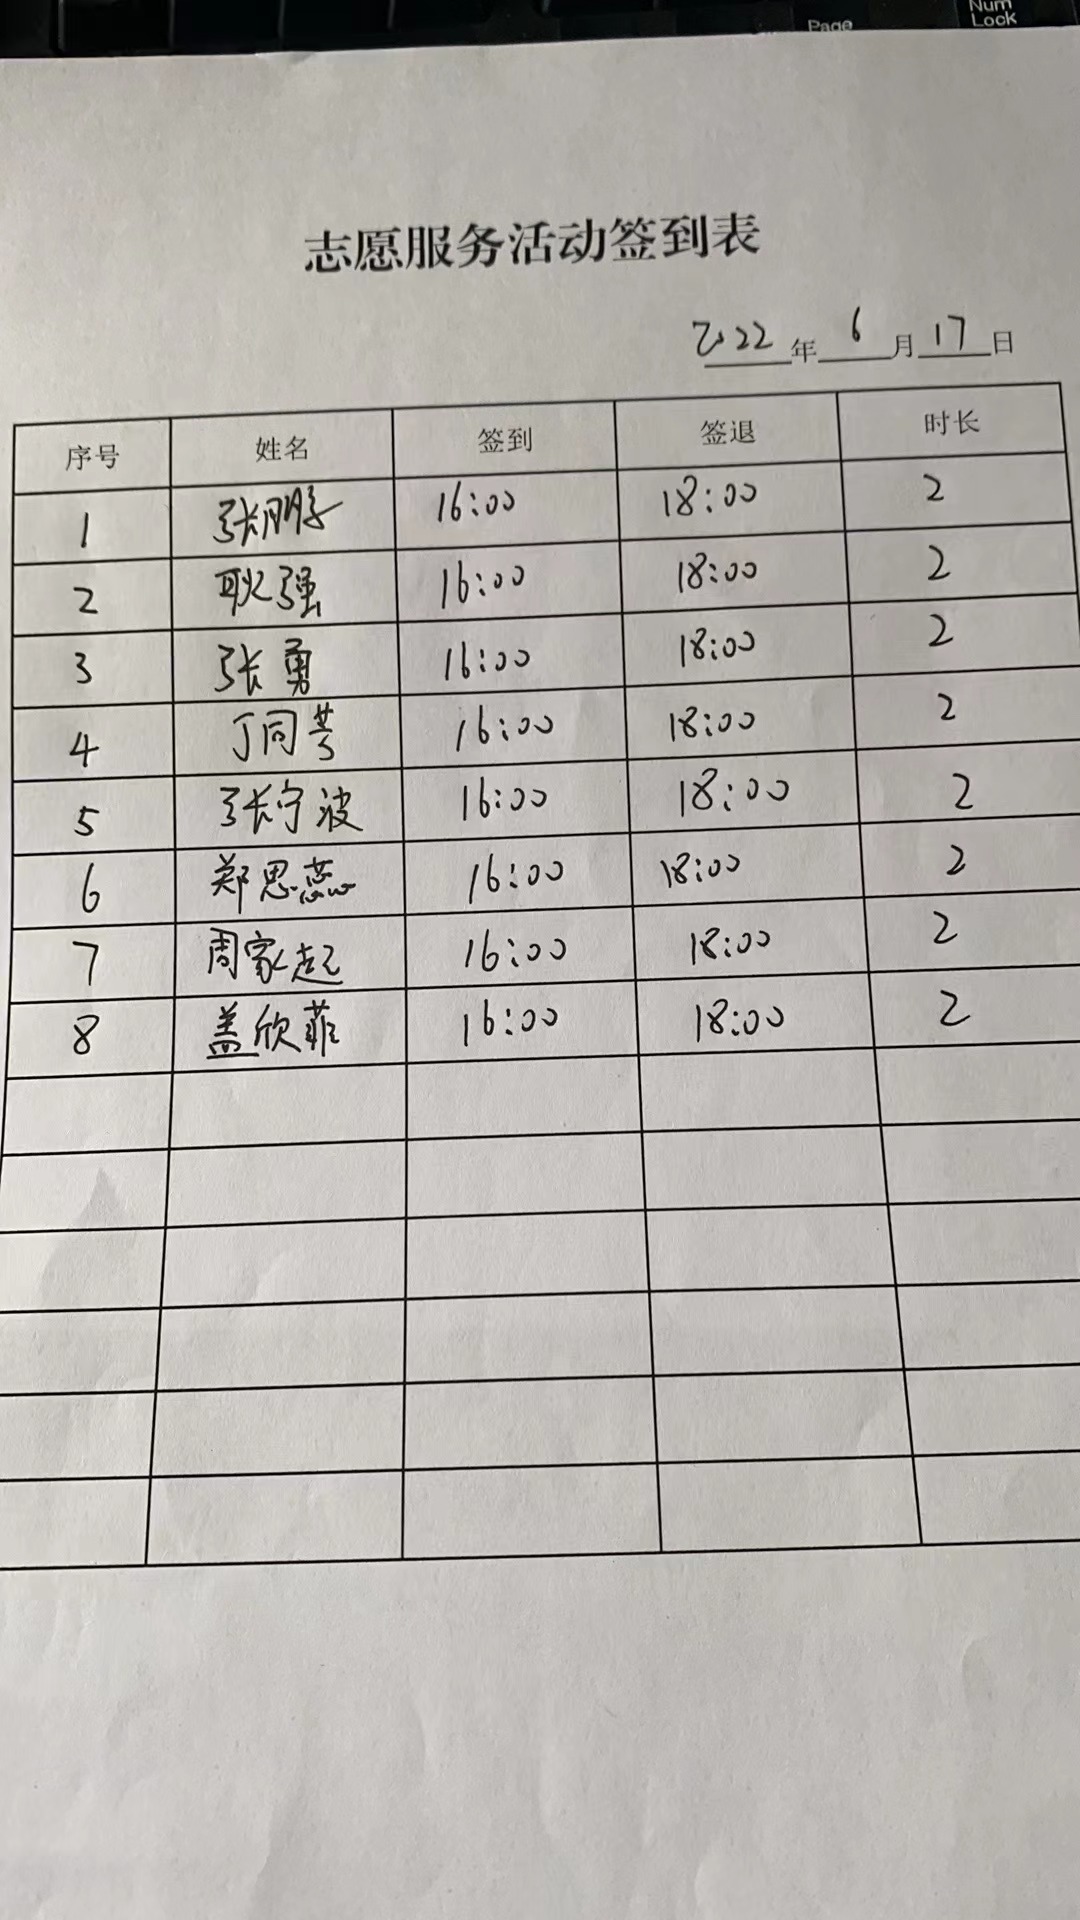 Page
Num
Lock
志愿服务活动签到表
2022年6月17日
序号 姓名 签到 签退 时长
1 张鹏 16:00 18:00 2
2 耿强 16:00 18:00 2
3 张勇 16:00 18:00 2
4 丁同芳 16:00 18:00 2
5 张宁波 16:00 18:00 2
6 郑思蕊 16:00 18:00 2
7 周家起 16:00 18:00 2
8 盖欣菲 16:00 18:00 2